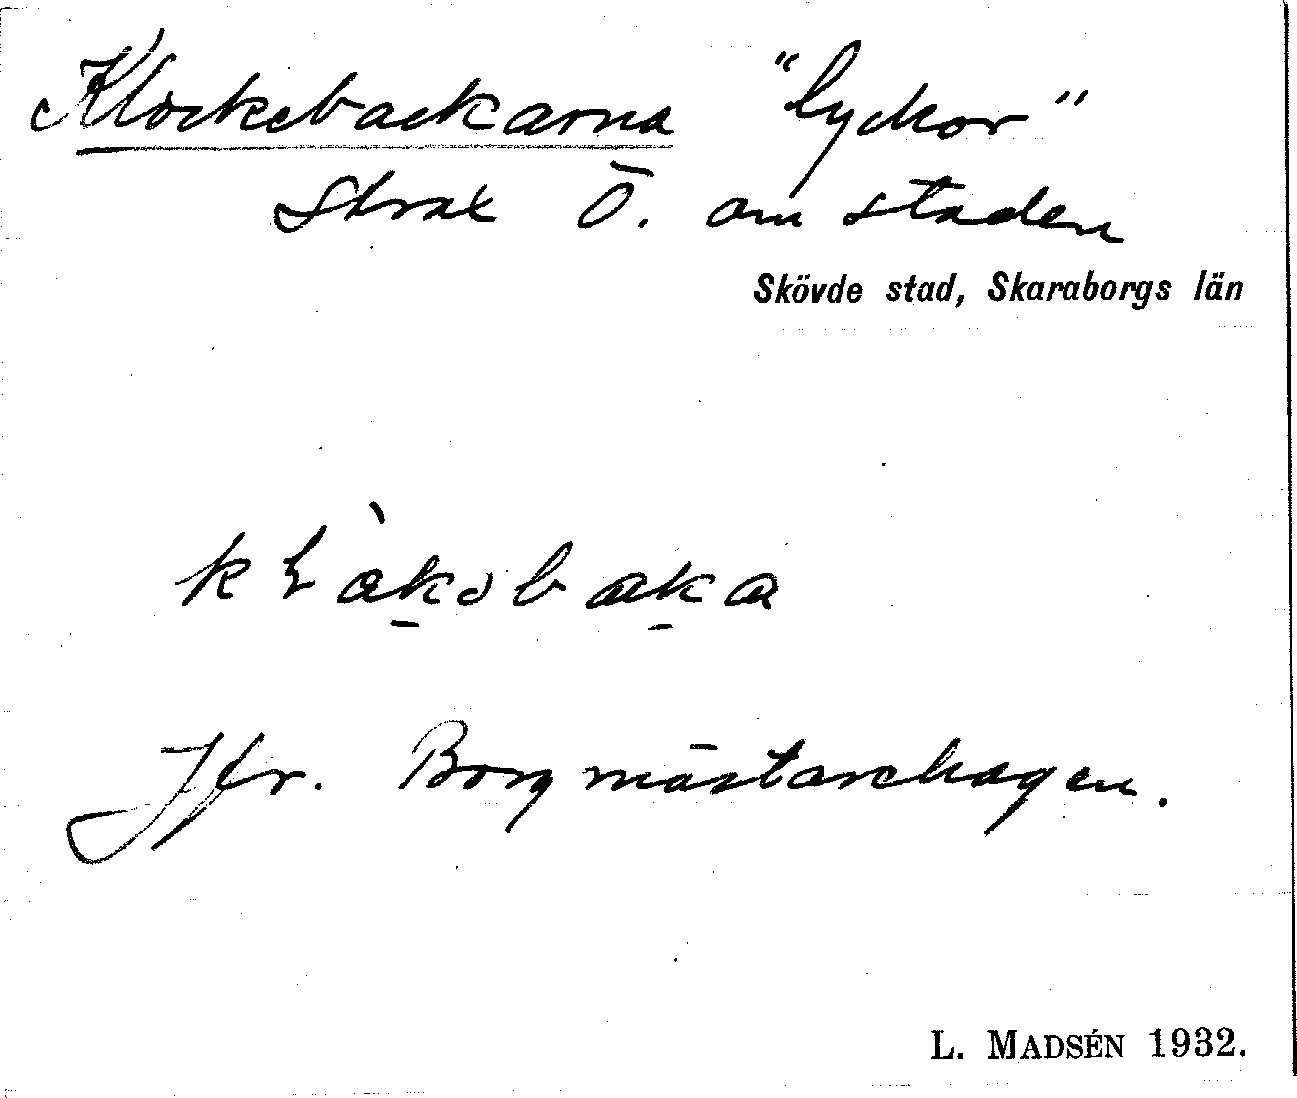 Klockebackarna "lyckor"
strax Ö. om staden
Skövde stad, Skaraborgs län
Jfr. Borgmästarehagen.
L. MADSÉN 1932.